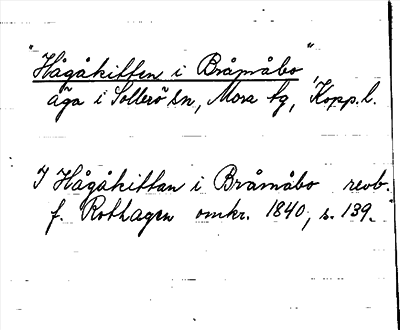 "Hågåkitten i Bråmåbo"
äga i Sollerö sn, Mora tg, Kopp.l.
I Hågåkittan i Bråmåbo revb.
f. Rothagen omkr. 1840, s. 139.